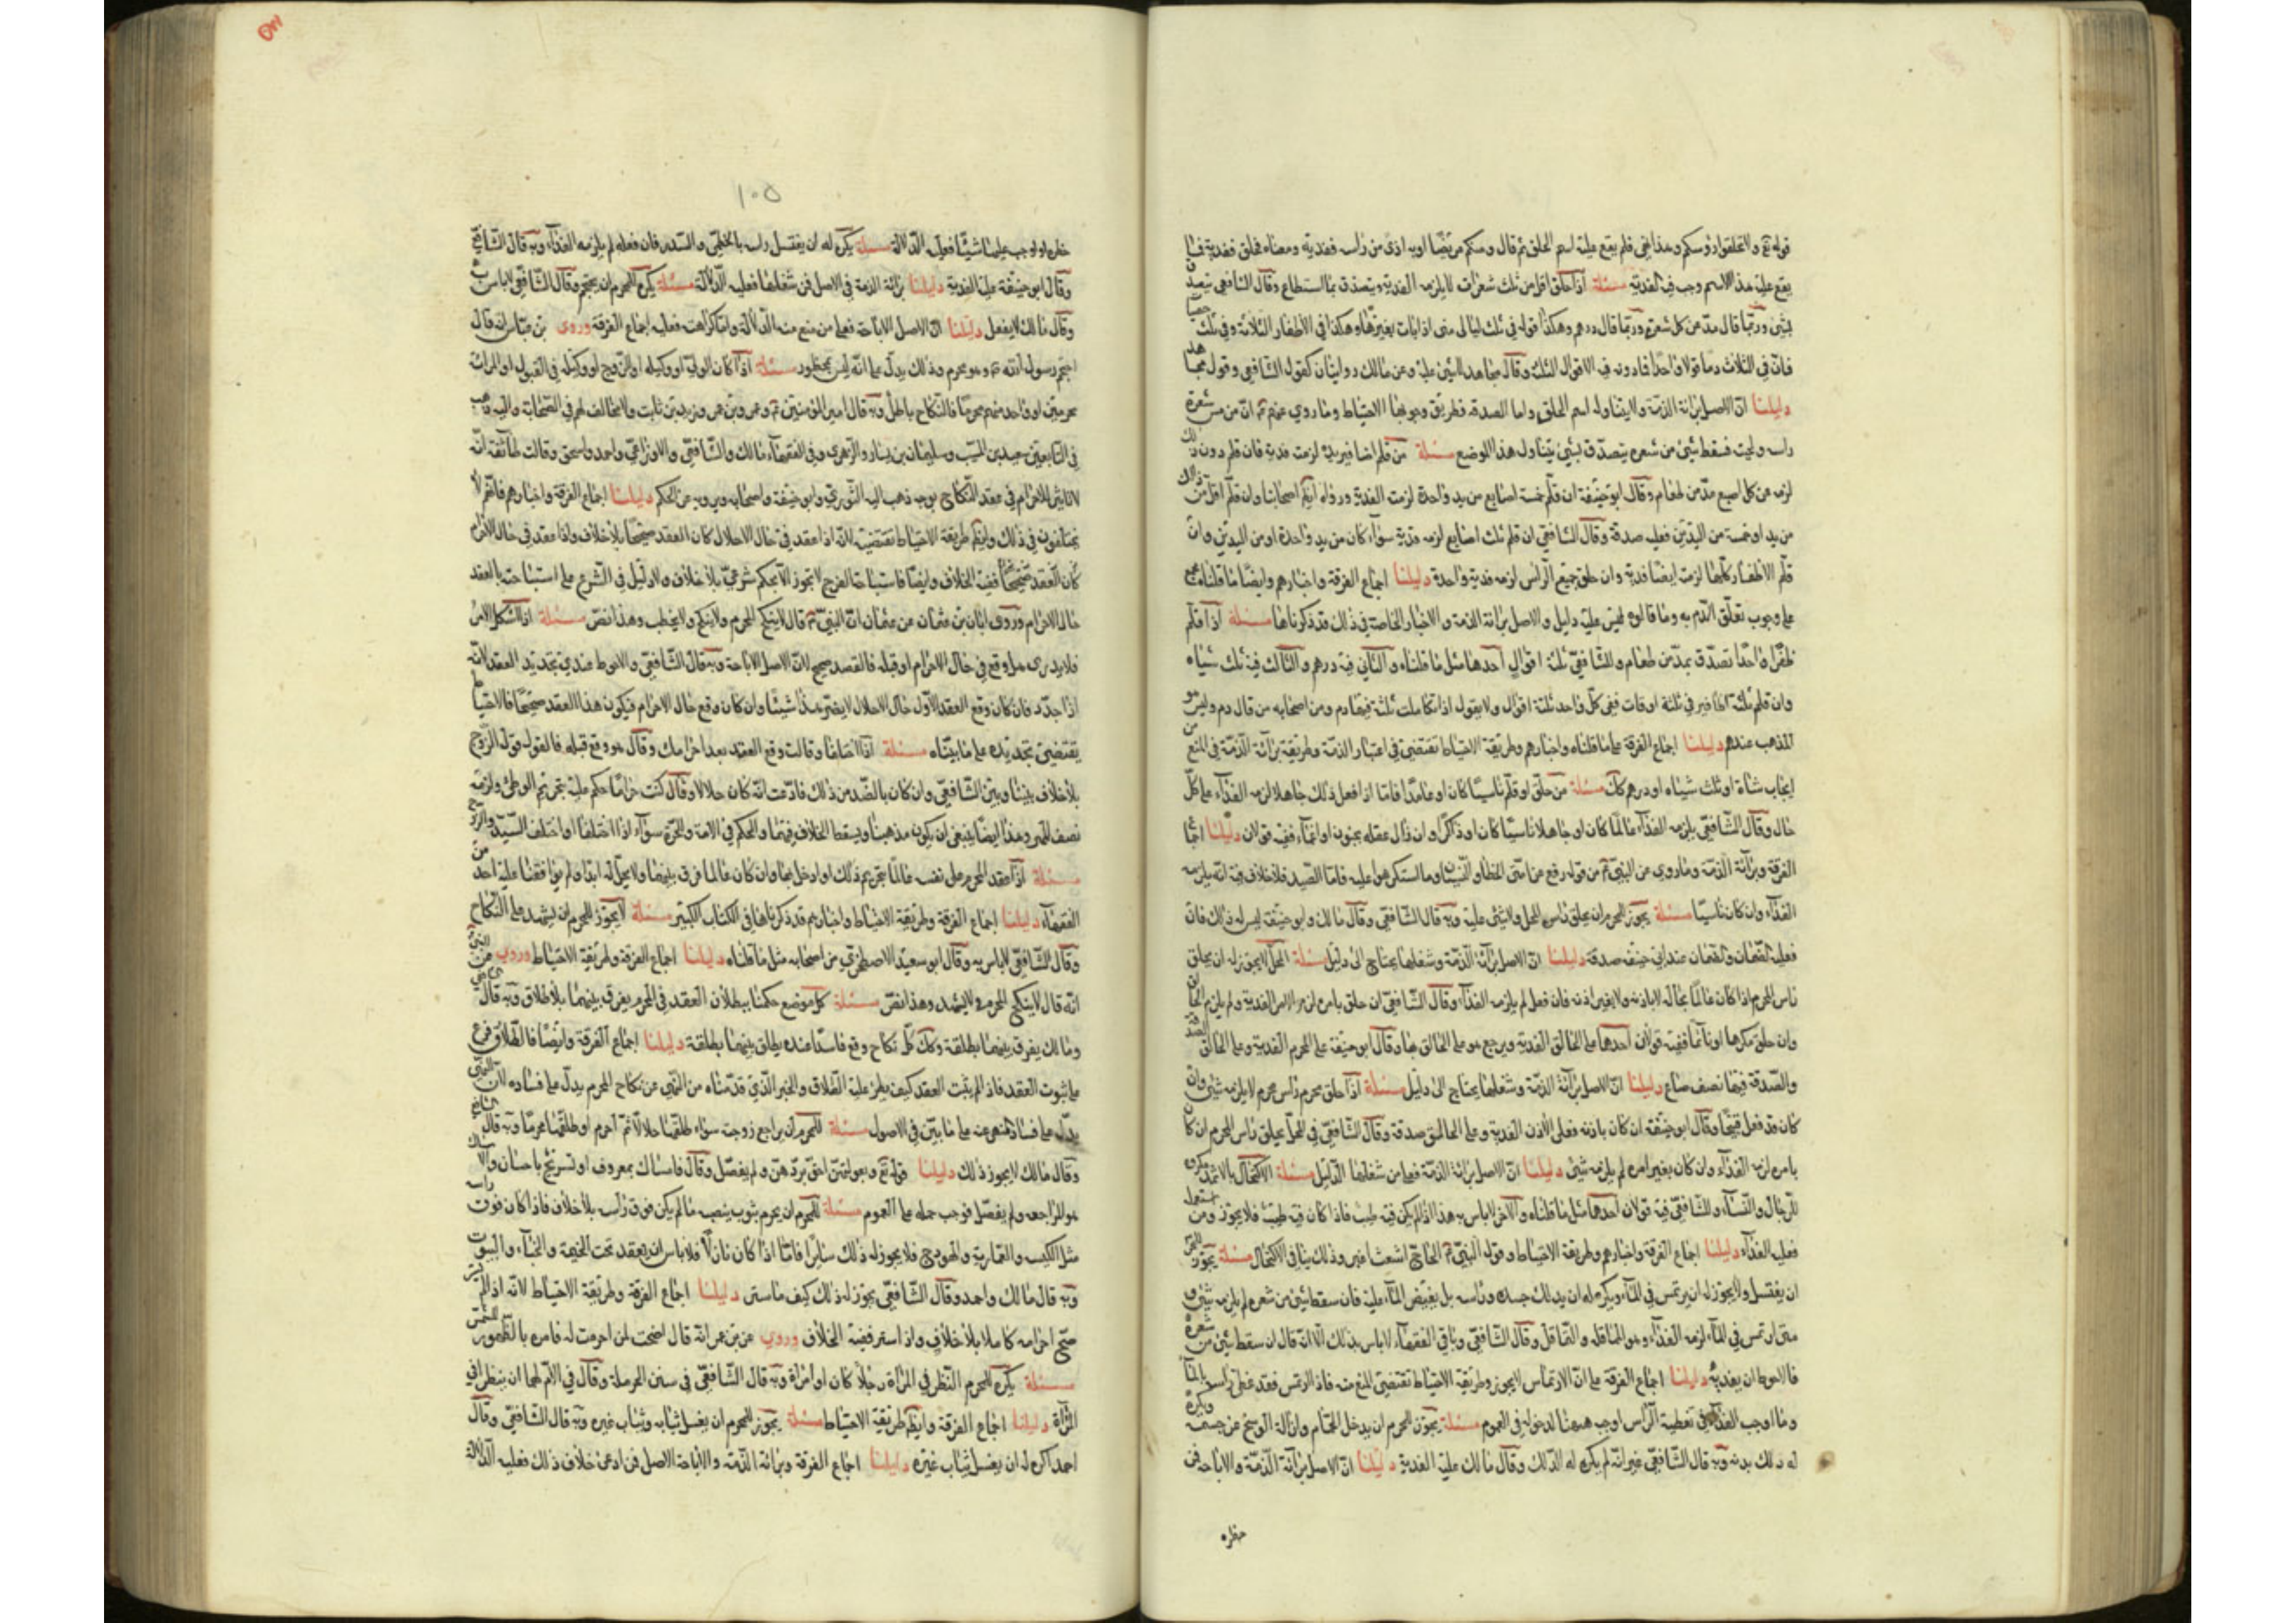 قوله تع ولا تحلقوا رؤسكم وهذا نهى فلم يقع عليه اسم الحلق ثم قال ومنكم مريضا او به اذى من راسه ففدية ومعناه فحلق ففدية فما
يقع عليه هذا الاسم وجب فيه الفدية مسئلة اذا حلق اقل من ثلث شعرات لا يلزمه الفدية ويتصدق بما استطاع وقال الشافعي
بشئ وربما قال مد عن كل شعرة وربما قال درهم وهكذا قوله في ثلث ليالي منى اذا بات بغيرها وهكذا في الاظفار الثلاثة وفي ثلث
فان في الثلاث دما قولا واحدا فما دونه فيه الاقوال الثلث وقال مجاهد لا شئ عليه وعن مالك روايتان كقول الشافعي وقول مجاهد
دليلنا ان الاصل براءة الذمة ولا يتناوله اسم الحلق واما الصدقة فطريق وجوبها الاحتياط وما روي عنهم ان من مس شعرة
راسه ولحيته فسقط شئ من شعره يتصدق بشئ يتناول هذا الموضع مسئلة من قلم اظافير يديه لزمته فدية فان قلم دون ذلك
لزمه عن كل اصبع مد من طعام وقال ابو حنيفة ان قلم خمسة اصابع من يد واحدة لزمته الفدية ورواه ايضا اصحابنا وان قلم اقل من ذلك
من يد او خمسة من اليدين فعليه صدقة وقال الشافعي ان قلم ثلث اصابع لزمه فدية سواء كان من يد واحدة او من اليدين وان
قلم الاظفار كلها لزمته ايضا فدية وان حلق جميع الرأس لزمه فدية واحدة دليلنا اجماع الفرقة واخبارهم وايضا ما قلناه مجمع
على وجوب تعلق الدم به وما قالوه ليس عليه دليل والاصل براءة الذمة والاخبار الخاصة في ذلك قد ذكرناها مسئلة اذا قلم
ظفرا واحدا تصدق بمد من طعام وللشافعي ثلثة اقوال احدها مثل ما قلناه والثاني فيه درهم والثالث فيه ثلث شياه
وان قلم ثلثة اظافير في ثلثة اوقات ففي كل واحد ثلثة اقوال ولا يقول اذا تكاملت ثلثة فيها دم ومن اصحابه من قال دم وليس هو
المذهب عندهم دليلنا اجماع الفرقة على ما قلناه واخبارهم وطريقة الاحتياط تقتضي في اعتبار الذمة وطريقة براءة الذمة في المنع من
ايجاب شاة او ثلث شياه او درهم كك مسئلة من حلق او قلم ناسيا كان او عامدا فاما اذا فعل ذلك جاهلا لزمه الفداء على كل
حال وقال الشافعي يلزمه الفداء عالما كان او جاهلا ناسيا كان او ذاكرا وان زال عقله بجنون او اغماء ففيه قولان دليلنا اجماع
الفرقة وبراءة الذمة وما روي عن النبي من قوله رفع عن امتى الخطا والنسيان وما استكرهوا عليه فاما الصيد فلا خلاف فيه انه يلزمه
الفداء وان كان ناسيا مسئلة يجوز للمحرم ان يحلق رأس المحل ولا شئ عليه وبه قال الشافعي وقال مالك وابو حنيفة ليس له ذلك فان
فعليه الضمان والضمان عند ابي حنيفة صدقة دليلنا ان الاصل براءة الذمة وشغلها يحتاج الى دليل مسئلة المحل لا يجوز له ان يحلق
رأس المحرم اذا كان عالما بحاله لا باذنه ولا بغير اذنه فان فعل لم يلزمه الفداء وقال الشافعي ان حلق بامره لزم الامر الفدية ولم يلزم الحالق
وان حلق مكرها او نائما ففيه قولان احدهما على الحالق الفدية ويرجع هو على الحالق بها وقال ابو حنيفة على المحرم الفدية وعلى الحالق الصدقة
والصدقة فيها نصف صاع دليلنا ان الاصل براءة الذمة وشغلها يحتاج الى دليل مسئلة اذا حلق محرم رأس محرم لا يلزمه شئ وان
كان قد فعل قبيحا وقال ابو حنيفة ان كان باذنه فعلى الآذن الفدية وعلى الحالق صدقة وقال الشافعي في المحل يحلق رأس المحرم ان كان
بامره لزمه الفداء وان كان بغير امره لم يلزمه شئ دليلنا ان الاصل براءة الذمة فعلى من شغلها الدليل مسئلة الاكتحال بالاثمد مكروه
للرجال والنساء وللشافعي فيه قولان احدهما مثل ما قلناه والاخر لا باس به هذا اذا لم يكن فيه طيب فاذا كان فيه طيب فلا يجوز ومن استعمله
فعليه الفداء دليلنا اجماع الفرقة واخبارهم وطريقة الاحتياط وقوله النبي الحاج اشعث اغبر وذلك ينافي الاكتحال مسئلة يجوز للمحرم
ان يغتسل ولا يجوز له ان يرتمس في الماء ويكره له ان يدلك جسده ورأسه بل يفيض الماء عليه فان سقط شئ من شعره لم يلزمه شئ و
متى ارتمس في الماء لزمه الفداء وهو المماقلة والتماقل وقال الشافعي وباقي الفقهاء لا باس بذلك الا انه قال ان سقط شئ من شعره
فالاحوط ان يفديه دليلنا اجماع الفرقة على ان الارتماس لا يجوز وطريقة الاحتياط تقتضي المنع منه فاذا ارتمس فقد غطى رأسه بالماء
وما اوجب الفداء في تغطية الرأس اوجب ههنا لدخوله في العموم مسئلة يجوز للمحرم ان يدخل الحمام وازالة الوسخ عن جسمه ويكره
له دلك بدنه وبه قال الشافعي غير انه لم يكره له الدلك وقال مالك عليه الفدية دليلنا ان الاصل براءة الذمة والاباحة فمن
حظره
١٠٥
حظره او اوجب عليها شيئا فعليه الدلالة مسئلة يكره له ان يغتسل راسه بالخطمي والسدر فان فعله لم يلزمه الفداء وبه قال الشافعي
وقال ابو حنيفة عليه الفدية دليلنا براءة الذمة في الاصل فمن شغلها فعليه الدلالة مسئلة يكره للمحرم ان يحتجم وقال الشافعي لا باس به
وقال مالك لا يفعل دليلنا ان الاصل الاباحة فعلى من منع منه الدلالة واما كراهته فعليه اجماع الفرقة وروى بن عباس انه قال
احتجم رسول الله وهو محرم وذلك يدل على انه ليس بمحظور مسئلة اذا كان الولي او وكيله او الزوج او وكيله في القبول او المراة
محرمين او واحد منهم محرما فالنكاح باطل وبه قال امير المؤمنين وعمر وبن عمر وزيد بن ثابت ولا مخالف لهم في الصحابة واليه ذهب
في التابعين سعيد بن المسيب وسليمان بن يسار والزهري وفي الفقهاء مالك والشافعي والاوزاعي واحمد واسحق وقالت طائفة انه
لا تاثير للاحرام في عقد النكاح بوجه ذهب اليه الثوري وابو حنيفة واصحابه ورووه عن الحكم دليلنا اجماع الفرقة واخبارهم فانهم لا
يختلفون في ذلك وايضا طريقة الاحتياط تقتضيه لانه اذا عقد في حال الاحلال كان العقد صحيحا بلا خلاف واذا عقد في حال الاحرام
كان العقد صحيحا ففيه الخلاف وايضا فاستباحة الفرج لا تجوز الا بحكم شرعي بلا خلاف ولا دليل في الشرع على استباحته بالعقد
حال الاحرام وروى ابان بن عثمان عن عثمان ان النبي قال لا ينكح المحرم ولا ينكح ولا يخطب وهذا نص مسئلة اذا اشكل الامر
فلا يدرى هل وقع في حال الاحرام او قبله فالعقد صحيح لان الاصل الاباحة وبه قال الشافعي والاحوط عندي تجديد العقد لانه
اذا جدد فان كان وقع العقد الاول حال الاحلال لا يضر هذا شيئا وان كان وقع حال الاحرام فيكون هذا العقد صحيحا فالاحتياط
يقتضي تجديده على ما بيناه مسئلة اذا اختلفا وقالت وقع العقد بعد احرامك وقال هو وقع قبله فالقول قول الزوج
بلا خلاف بيننا وبين الشافعي وان كان بالضد من ذلك فادعت انه كان حلالا وقال كنت حراما حكم عليه بتحريم الوطئ ولزمه
نصف المهر وهذا ايضا ينبغي ان يكون مذهبنا ويسقط الخلاف فيهما والحكم في الامة والحرة سواء اذا اختلفا او اختلف السيد والزوج
مسئلة اذا عقد المحرم على نفسه عالما بتحريم ذلك او دخل بها وان كان عالما فرق بينهما ولا تحل له ابدا ولم يوافقنا عليه احد من
الفقهاء دليلنا اجماع الفرقة وطريقة الاحتياط واخبارهم قد ذكرناها في الكتاب الكبير مسئلة لا يجوز للمحرم ان يشهد على النكاح
وقال الشافعي لا باس به وقال ابو سعيد الاصطخري من اصحابه مثل ما قلناه دليلنا اجماع الفرقة وطريقة الاحتياط وروي عن النبي
انه قال لا ينكح المحرم ولا يشهد وهذا نص مسئلة كل موضع حكمنا ببطلان العقد في المحرم يفرق بينهما بلا طلاق وبه قال الشافعي
وما لك يفرق بينهما بطلقة وكك كل نكاح وقع فاسدا عنده يطلق بينهما بطلقة دليلنا اجماع الفرقة وايضا فالطلاق فرع
على ثبوت العقد فاذا لم يثبت العقد كيف يطرء عليه الطلاق والخبر الذي قدمناه من النهي عن نكاح المحرم يدل على فساده لان النهي
يدل على فساد المنهي عنه على ما بين في الاصول مسئلة للمحرم ان يراجع زوجته سواء طلقها حلالا ثم احرم او طلقها محرما وبه قال الشافعي
وقال مالك لا يجوز ذلك دليلنا قوله تع وبعولتهن احق بردهن ولم يفصل وقال فامساك بمعروف او تسريح باحسان والامساك
هو المراجعة ولم يفصل فوجب حمله على العموم مسئلة للمحرم ان يحرم بثوب ينصبه ما لم يكن فوق رأسه بلا خلاف فاذا كان فوق راسه
مثل الكنيسة والعمارية والهودج فلا يجوز له ذلك سائرا فاما اذا كان نازلا فلا باس ان يقعد تحت الخيمة والخباء والبيوت
وبه قال مالك واحمد وقال الشافعي يجوز له ذلك كيف ما ستر دليلنا اجماع الفرقة وطريقة الاحتياط لانه اذا لم يستر
صح احرامه كاملا بلا خلاف واذا ستر ففيه الخلاف وروي عن بن عمر انه قال اضحت لمن احرمت له فامره بالظهور للشمس
مسئلة يكره للمحرم النظر في المرأة رجلا كان او امرأة وبه قال الشافعي في سنن الحرملة وقال في الام لهما ان ينظرا في
المرأة دليلنا اجماع الفرقة وايضا طريقة الاحتياط مسئلة يجوز للمحرم ان يغسل ثيابه وثياب غيره وبه قال الشافعي وقال
احمد اكره له ان يغسل ثياب غيره دليلنا اجماع الفرقة وبراءة الذمة والاباحة الاصل فمن ادعى خلاف ذلك فعليه الدلالة